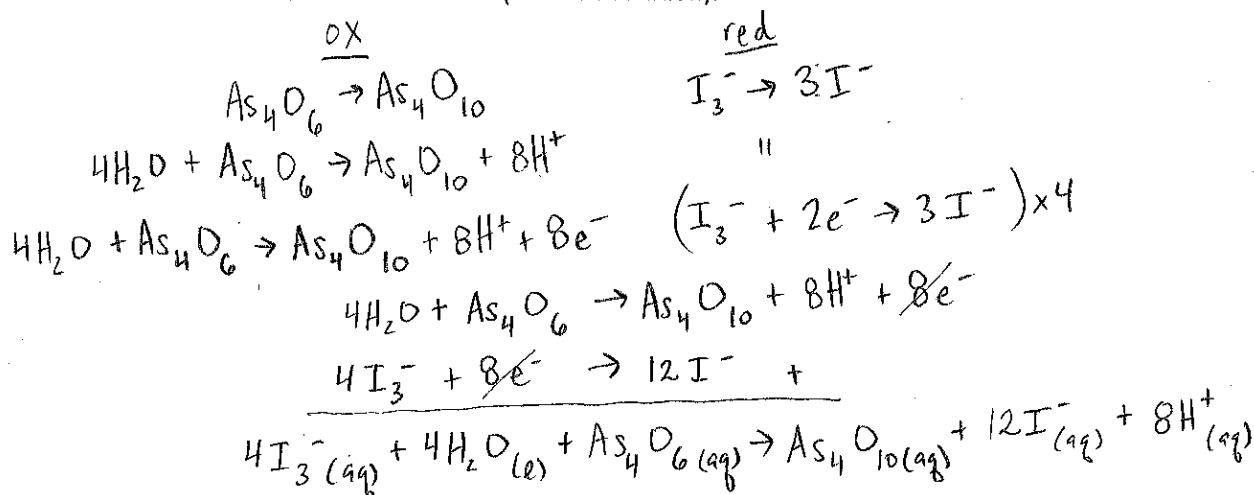 ox red
As₄O₆ → As₄O₁₀ I₃⁻ → 3I⁻
4H₂O + As₄O₆ → As₄O₁₀ + 8H⁺ "
4H₂O + As₄O₆ → As₄O₁₀ + 8H⁺ + 8e⁻ (I₃⁻ + 2e⁻ → 3I⁻)×4
4H₂O + As₄O₆ → As₄O₁₀ + 8H⁺ + 8e⁻
4I₃⁻ + 8e⁻ → 12I⁻ +
4I₃⁻(aq) + 4H₂O(l) + As₄O₆(aq) → As₄O₁₀(aq) + 12I⁻(aq) + 8H⁺(aq)